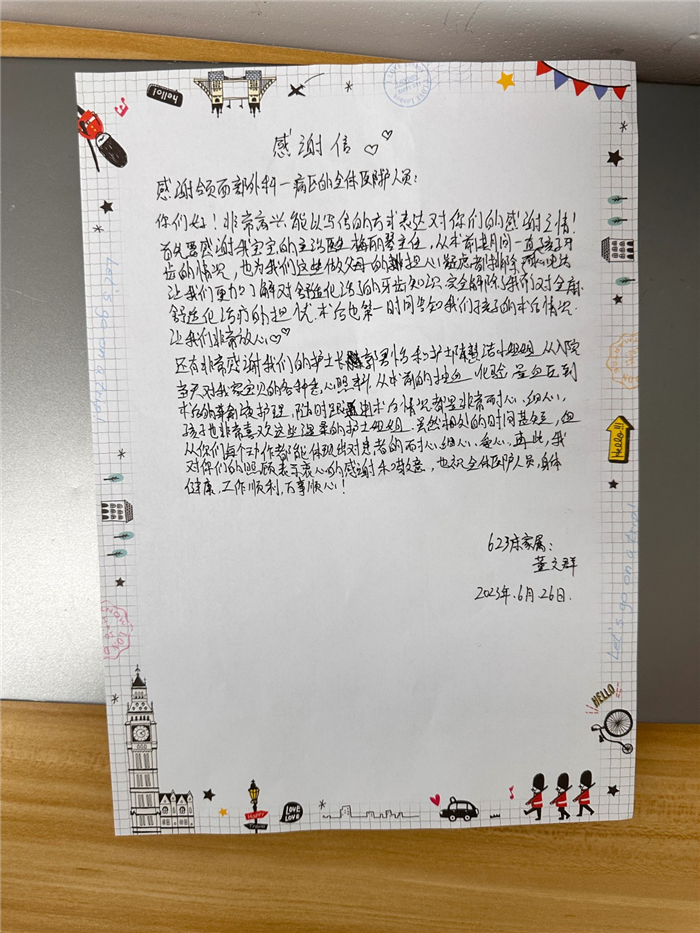 hello!
感谢信
感谢颌面部外科一病区的全体医护人员：
你们好！非常高兴能以写信的方式表达对你们的感谢之情！
首先要感谢我宝宝的主治医生梅丽琴主任，从术前期间一直孩子牙
齿的情况，也为我们这些做父母的担心疑虑都排除
让我们更加了解对舒适化治疗的牙齿知识，完全解除了我们对全麻
舒适化治疗的担忧.术后也第一时间告知我们孩子的术后情况.
让我们非常放心
还有非常感谢我们的护士长和护士小姐姐从入院
当天对我家宝贝的各种悉心照料.从术前的抽血、化验、量血压到
术后的护理，随时跟术后情况都是非常耐心，细心，
孩子也非常喜欢这些温柔的护士姐姐，虽然相处的时间甚短，但
从你们每个动作都能体现出对患者的耐心、细心、爱心，再此，我
对你们的照顾表示衷心的感谢和敬意，也祝全体医护人员，身体
健康.工作顺利，万事顺心！
623床家属：
董文群
2023年.6月.26日.
Let's go on a trip!
Hello!!!
Let's go on a trip!
HELLO
HAPPY
LOVE
LOVE